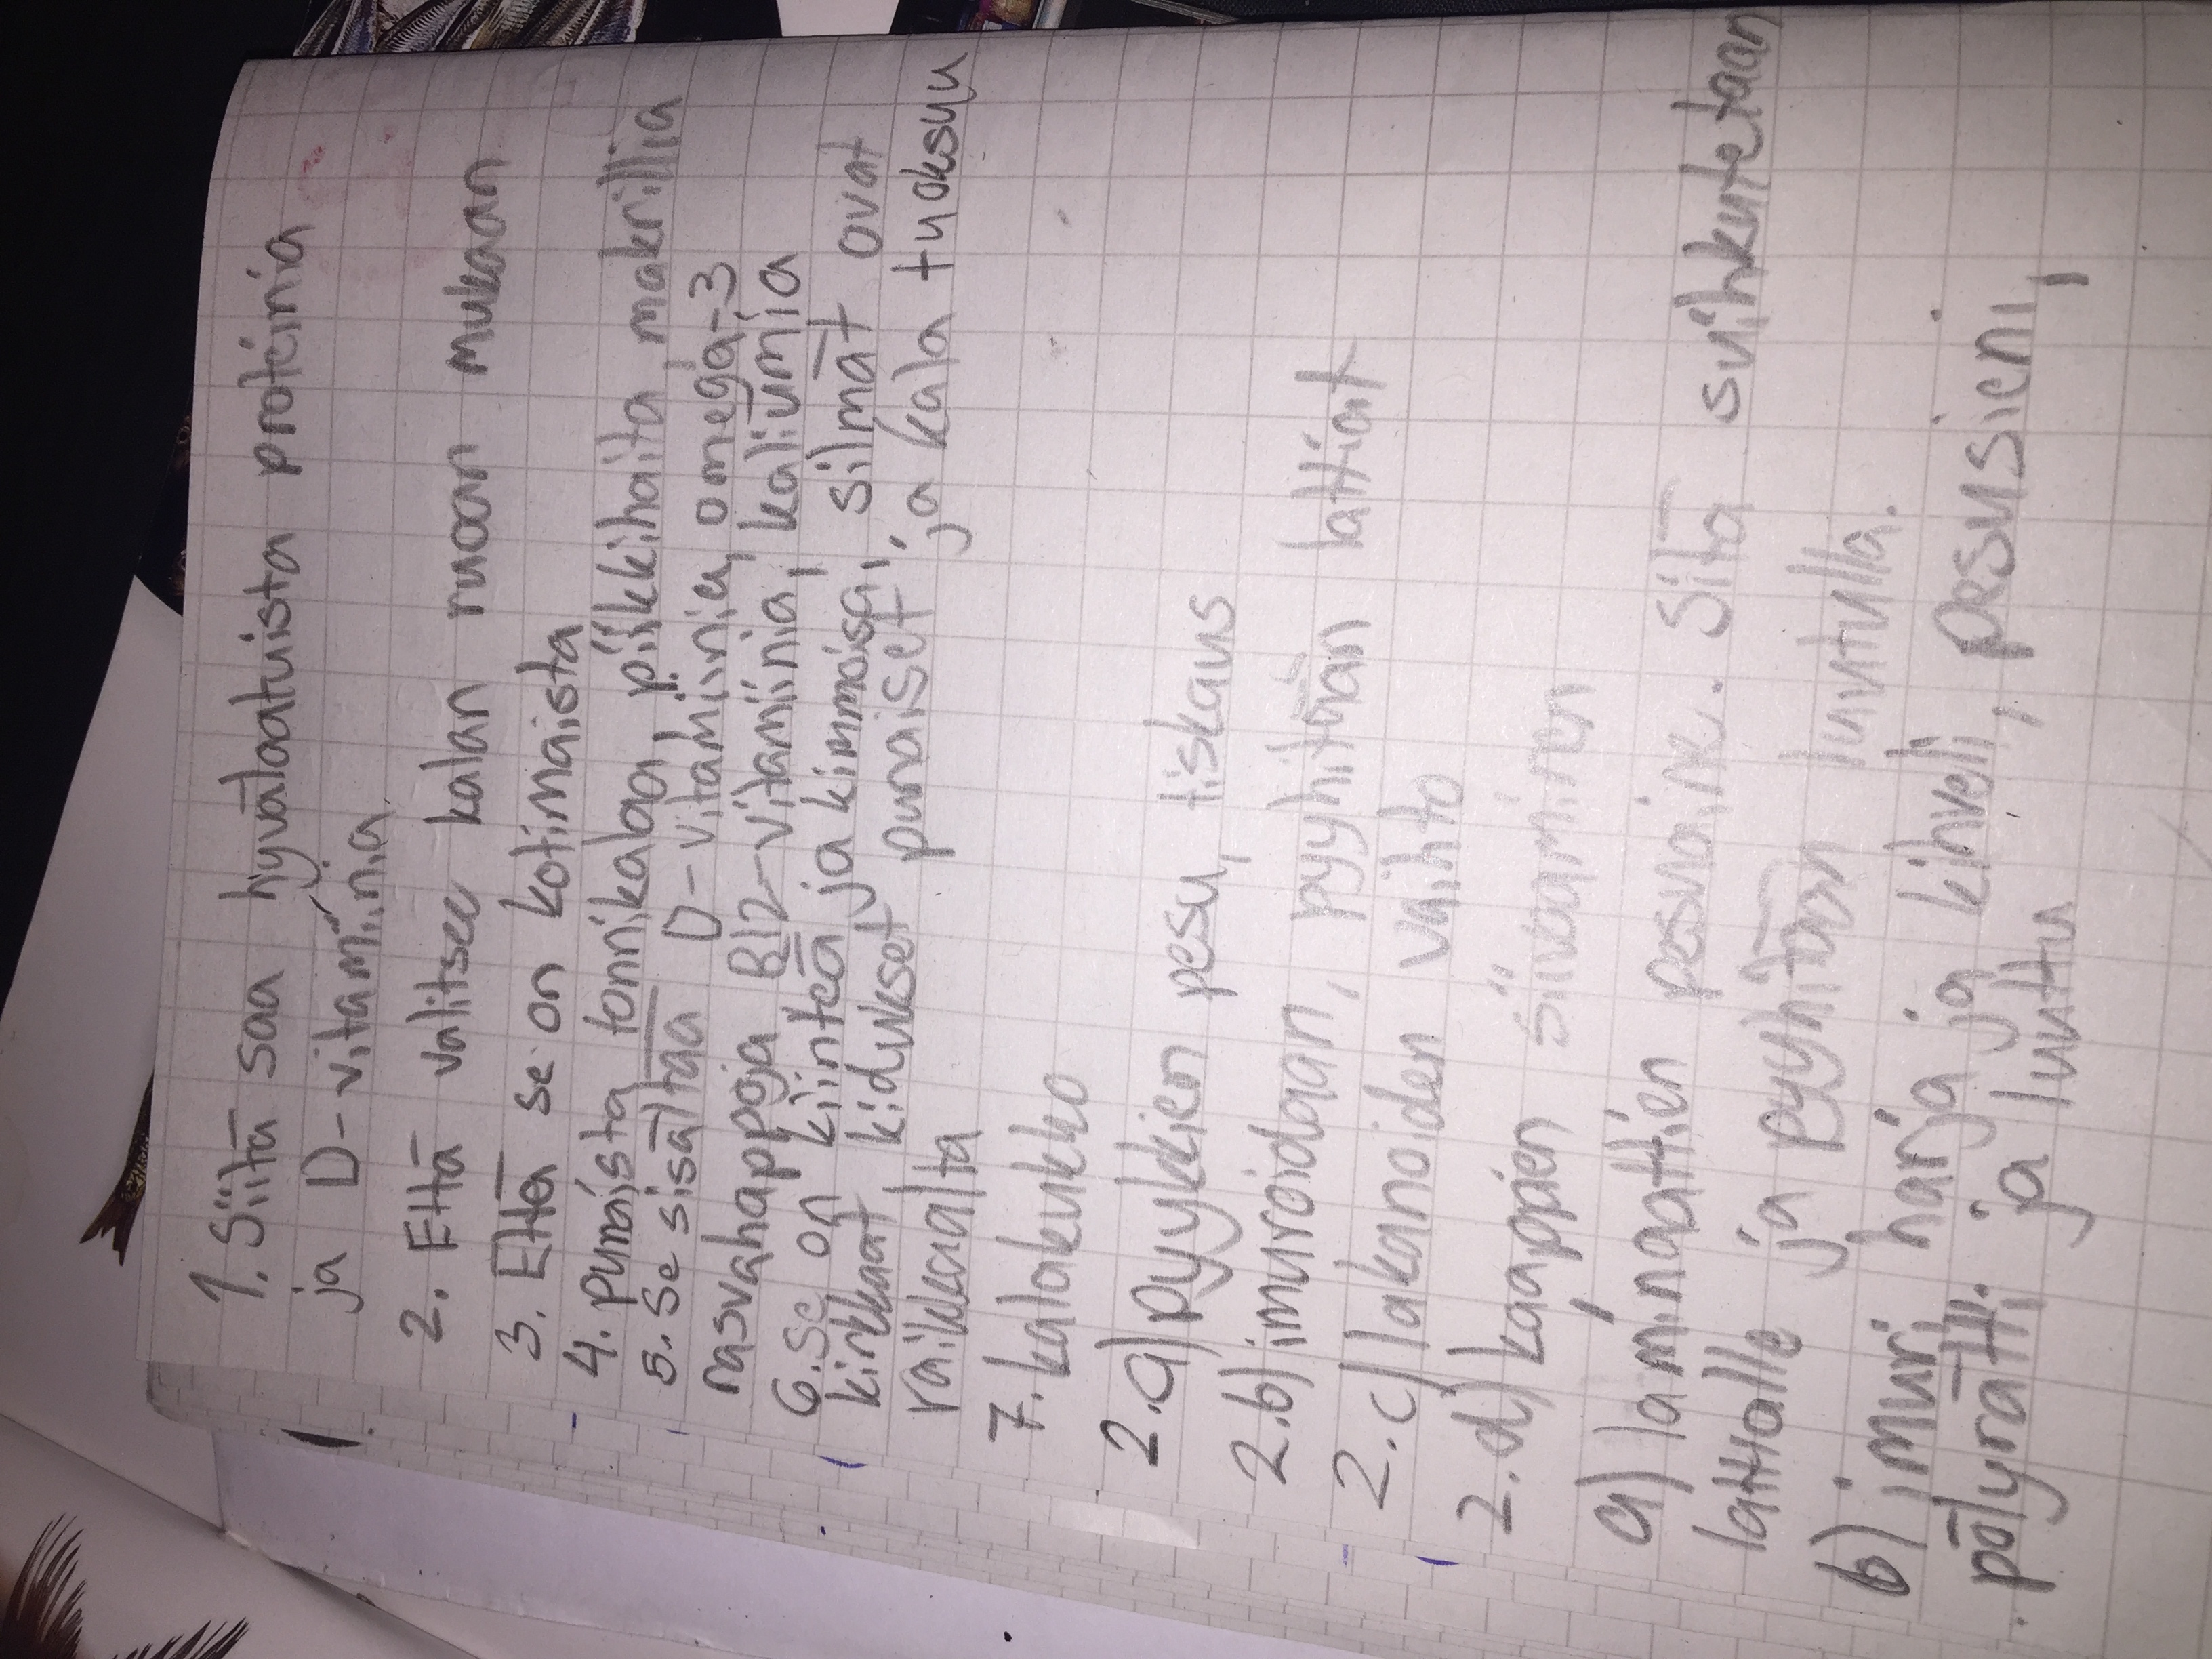 1. Siitä saa hyvälaatuista proteinia
ja D-vitamiinia
2. Että valitsee kalan ruoan mukaan
3. Että se on kotimaista
4. punaista tonnikalaa, piikkihaita, makrillia
5. se sisältää D-vitamiinia, omega-3
rasvahappoja B12-vitamiinia, kaliumia
6. Se on kiinteää ja kimmoisa, silmät ovat
kirkkaat kidukset punaiset, ja kala tuoksuu
raikkaalta
7. kalakukko
2.a) pyykkien pesu, tiskaus
2.b) imuroidaan, pyyhitään lattiat
2.c) lakanoiden vaihto
2.d) kaapien siivoaminen
a) laminaattien pesuaine. Sitä suihkutetaan
lattialle ja pyyhitään luutulla.
b) imuri, harja ja kihveli, pesusieni,
pölyrätti, ja luutu